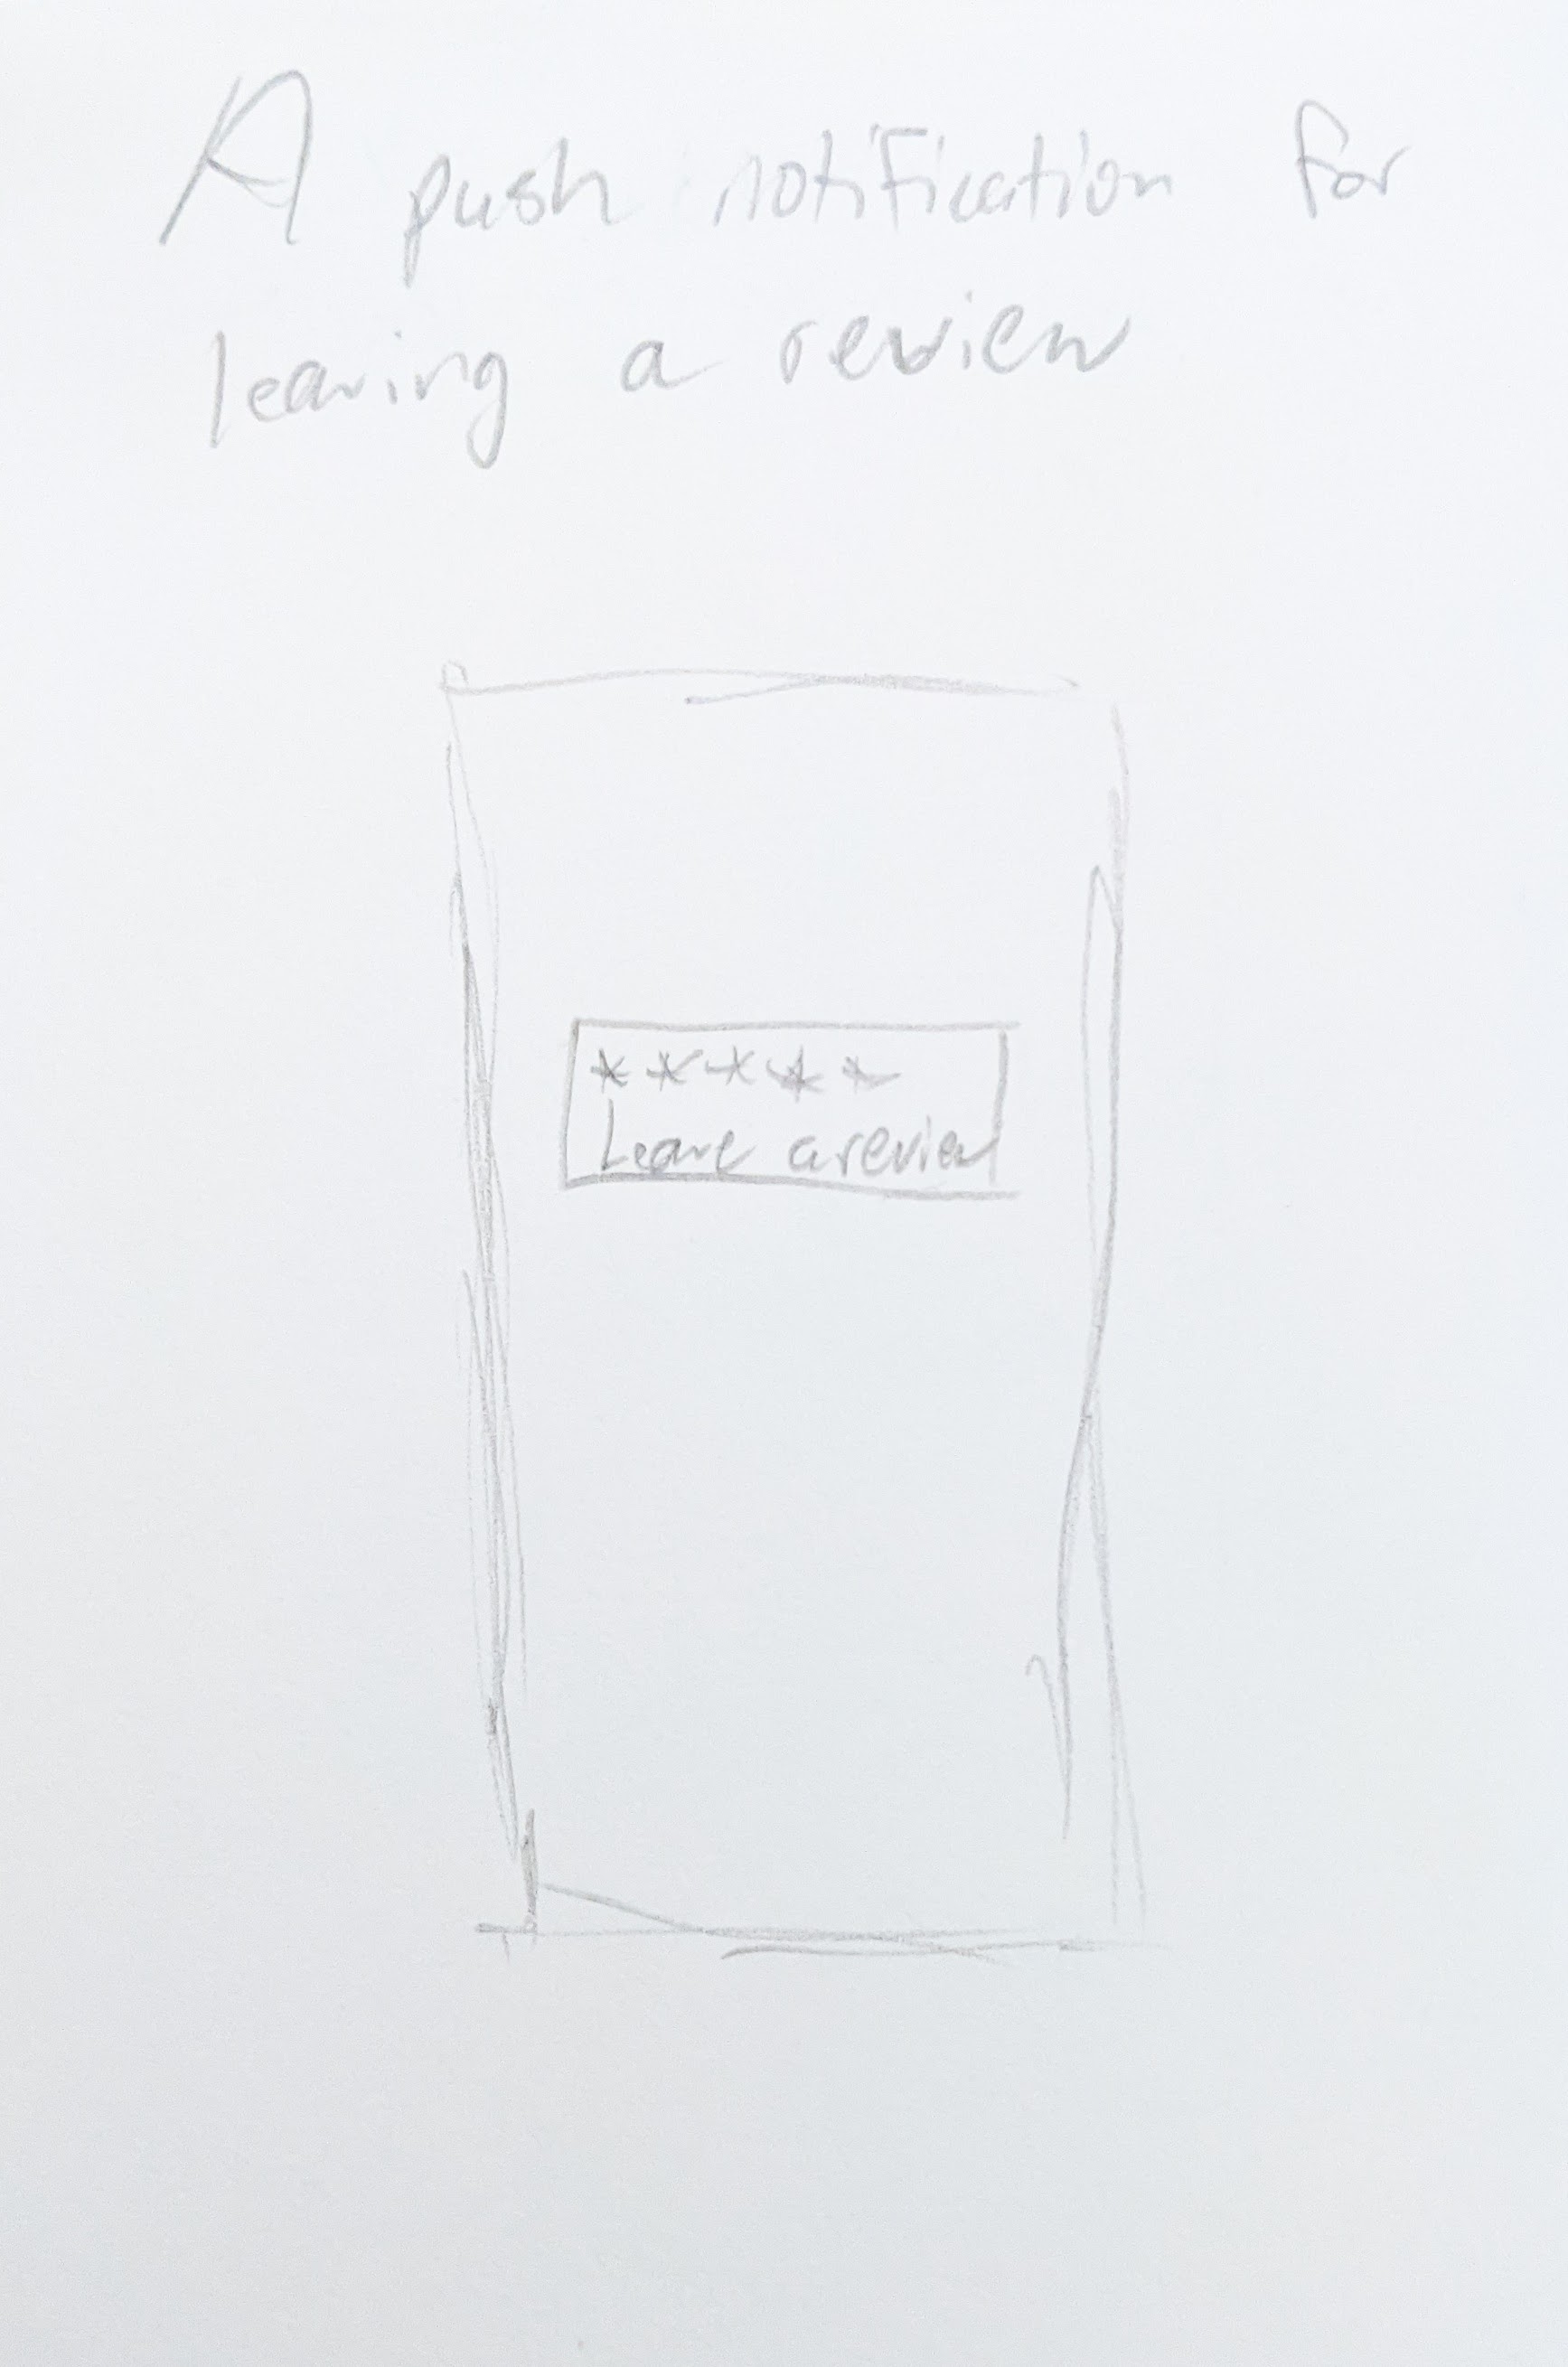 A push notification for
leaving a review
*****
Leave a review